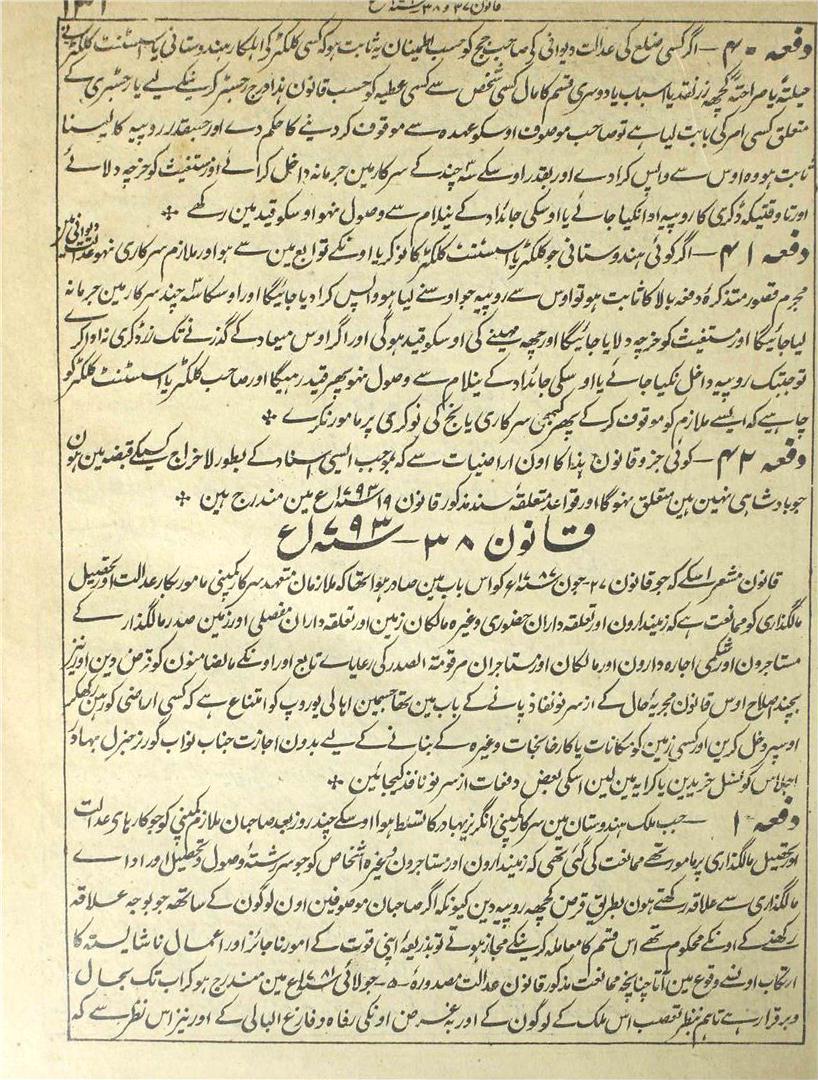 قانون ۳۷ و ۳۸ سنہ ع
۱۳۱
دفعہ ۴۰ - اگر کسی ضلع کی عدالت دیوانی کی صاحب جج کو حسب اطمینان یہ ثابت ہو کہ کسی کلکٹر کی اہلکار ہندوستانی یا اسسٹنٹ کلکٹر نے
حیلتہً یا صراحتہً کچھہ زر نقد یا اسباب یا دوسری قسم کا مال کسی شخص سے کسی عطیہ کو حسب قانون ہذا درج رجسٹر کرنیکے لیے یا رجسٹری کے
متعلق کسی امر کی بابت لیا ہے تو صاحب موصوف اوسکو عہدہ سے موقوف کر دینے کا حکم دے اور جسقدر روپیہ کا لینا
ثابت ہو وہ اوس سے واپس کرادے اور بقدر اوسکے سہ چند کے سرکار مین جرمانہ داخل کرائے اور مستغیث کو خرچہ دلائے
اور تا وقتیکہ ڈکری کا روپیہ ادا نکیا جائے یا اوسکی جائداد کے نیلام سے وصول نہو اوسکو قید مین رکھے ÷
دفعہ ۴۱ - اگر کوئی ہندوستانی جو کلکٹر یا اسسٹنٹ کلکٹر کا نوکر یا اونکے توابعین سے ہو اور ملازم سرکاری نہو عدالت دیوانی مین
مجرم قصور متذکرۂ دفعہ بالا کا ثابت ہو تو اوس سے روپیہ جو اوسنے لیا ہو واپس کرادیا جائیگا اور اوسکا سہ چند سرکار مین جرمانہ
لیا جائیگا اور مستغیث کو خرچہ دلایا جائیگا اور چھہ مہینے کی اوسکو قید ہوگی اور اگر اوس میعاد کے گذرنے تک زر ڈکری نہ ادا کرے
تو جبتک روپیہ داخل نکیا جائے یا اوسکی جائداد کے نیلام سے وصول نہو پھر قید رہیگا اور صاحب کلکٹر یا اسسٹنٹ کلکٹر کو
چاہیے کہ ایسے ملازم کو موقوف کر کے پھر کبھی سرکاری یا نج کی نوکری پر مامور نکرے ÷
دفعہ ۴۲ - کوئی جزو قانون ہذا کا اون اراضیات سے کہ بموجب ایسی اسناد کے بطور لاخراج کسیکے قبضہ مین ہون
جو بادشاہی نہین ہین متعلق نہوگا اور قواعد متعلقہ سند مذکور قانون ۱۹ سنہ ۱۷۹۳ع مین مندرج ہین ÷
قانون ۳۸ - سنہ ۱۷۹۳ع
قانون مشعر اسکے کہ جو قانون ۲۷ - جون سنہ ۱۷۸۷ع کو اس باب مین صادر ہوا تھا کہ ملازمان متعہد سرکار کمپنی مامور بکار عدالت اور تحصیل
مالگذاری کو ممانعت ہے کہ زمیندارون اور تعلقہ داران حضوری وغیرہ مالکان زمین اور تعلقہ داران مفصلی اور زمین صدر مالگذار کے
مستاجرون اور شکمی اجارہ دارون اور مالکان اور مستاجران مرقومۃ الصدر کی رعایاے تابع اور اونکے مالضامنون کو قرض دین اور نیز
بچند اصلاح اوس قانون مجریۂ حال کے ازسرنو نفاذ پانے کے باب مین تھا جسمین اہالی یوروپ کو امتناع ہے کہ کسی اراضی کو رہن رکھکر
اوسپر دخل کرین اور کسی زمین کو مکانات یا کارخانجات وغیرہ کے بنانے کے لیے بدون اجازت جناب نواب گورنر جنرل بہادر
اجلاس کونسل خریدین یا کرایہ مین لین اسکی بعض دفعات ازسرنو نافذ کیجائین ÷
دفعہ ۱ - جب ملک ہندوستان مین سرکار کمپنی انگریز بہادر کا تسلط ہوا اوسکے چند روز بعد صاحبان ملازم کمپنی کو جو کارہای عدالت
اور تحصیل مالگذاری پر مامور تھے ممانعت کی گئی تھی کہ زمیندارون اور مستاجرون وغیرہ اشخاص کو جو سررشتۂ وصول و تحصیل اور اداے
مالگذاری سے علاقہ رکھتے ہون بطریق قرض کچھہ روپیہ دین کیونکہ اگر صاحبان موصوفین اون لوگون کے ساتھہ جو بوجہ علاقہ
رکھنے کے اونکے محکوم تھے اس قسم کا معاملہ کرنیکے مجاز ہوتے تو بذریعۂ اپنی قوت کے امور ناجائز اور اعمال ناشایستہ کا
ارتکاب اونسے وقوع مین آتا چنانچہ ممانعت مذکور قانون عدالت مصدورۂ ۵ - جولائی سنہ ۱۷۸۱ع مین مندرج ہو کر اب تک بحال
و برقرار ہے تاہم بنظر تعصب اس ملک کے لوگون کے اور بہ غرض اونکی رفاہ و فارغ البالی کے اور نیز اس نظر سے کہ